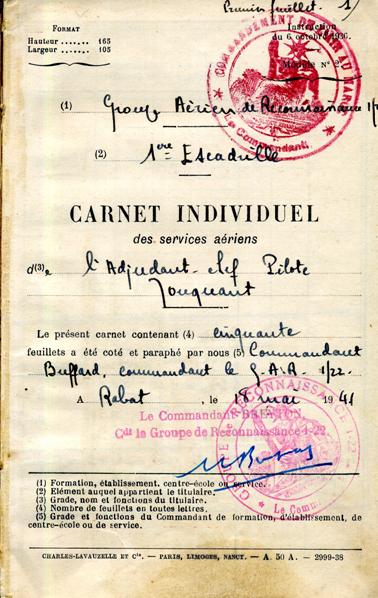 Premier feuillet. 1/
FORMAT
Hauteur ....... 165
Largeur ....... 105
Instruction
du 6 octobre 1936.
Module Nº 2.
COMMANDEMENT DE L'AIR AU MAROC
Le Commandant.
(1) Groupe Aérien de Reconnaissance 1/2
(2) 1ère Escadrille
CARNET INDIVIDUEL
des services aériens
d(3)e l'Adjudant-chef Pilote
Jouquant
Le présent carnet contenant (4) cinquante
feuillets a été coté et paraphé par nous (5) Commandant
Buffard, commandant le G.A.R. 1/22.
A Rabat, le 18 mai 1941
Le Commandant BRETON,
Cdt le Groupe de Reconnaissance 1-22.
GROUPE DE RECONNAISSANCE 1/22
Le Comm
(1) Formation, établissement, centre-école ou service.
(2) Elément auquel appartient le titulaire.
(3) Grade, nom et fonctions du titulaire.
(4) Nombre de feuillets en toutes lettres.
(5) Grade et fonctions du Commandant de formation, d'établissement, de
centre-école ou de service.
CHARLES-LAVAUZELLE ET Cie. — PARIS, LIMOGES, NANCY. — A. 50 A. - 2999-38